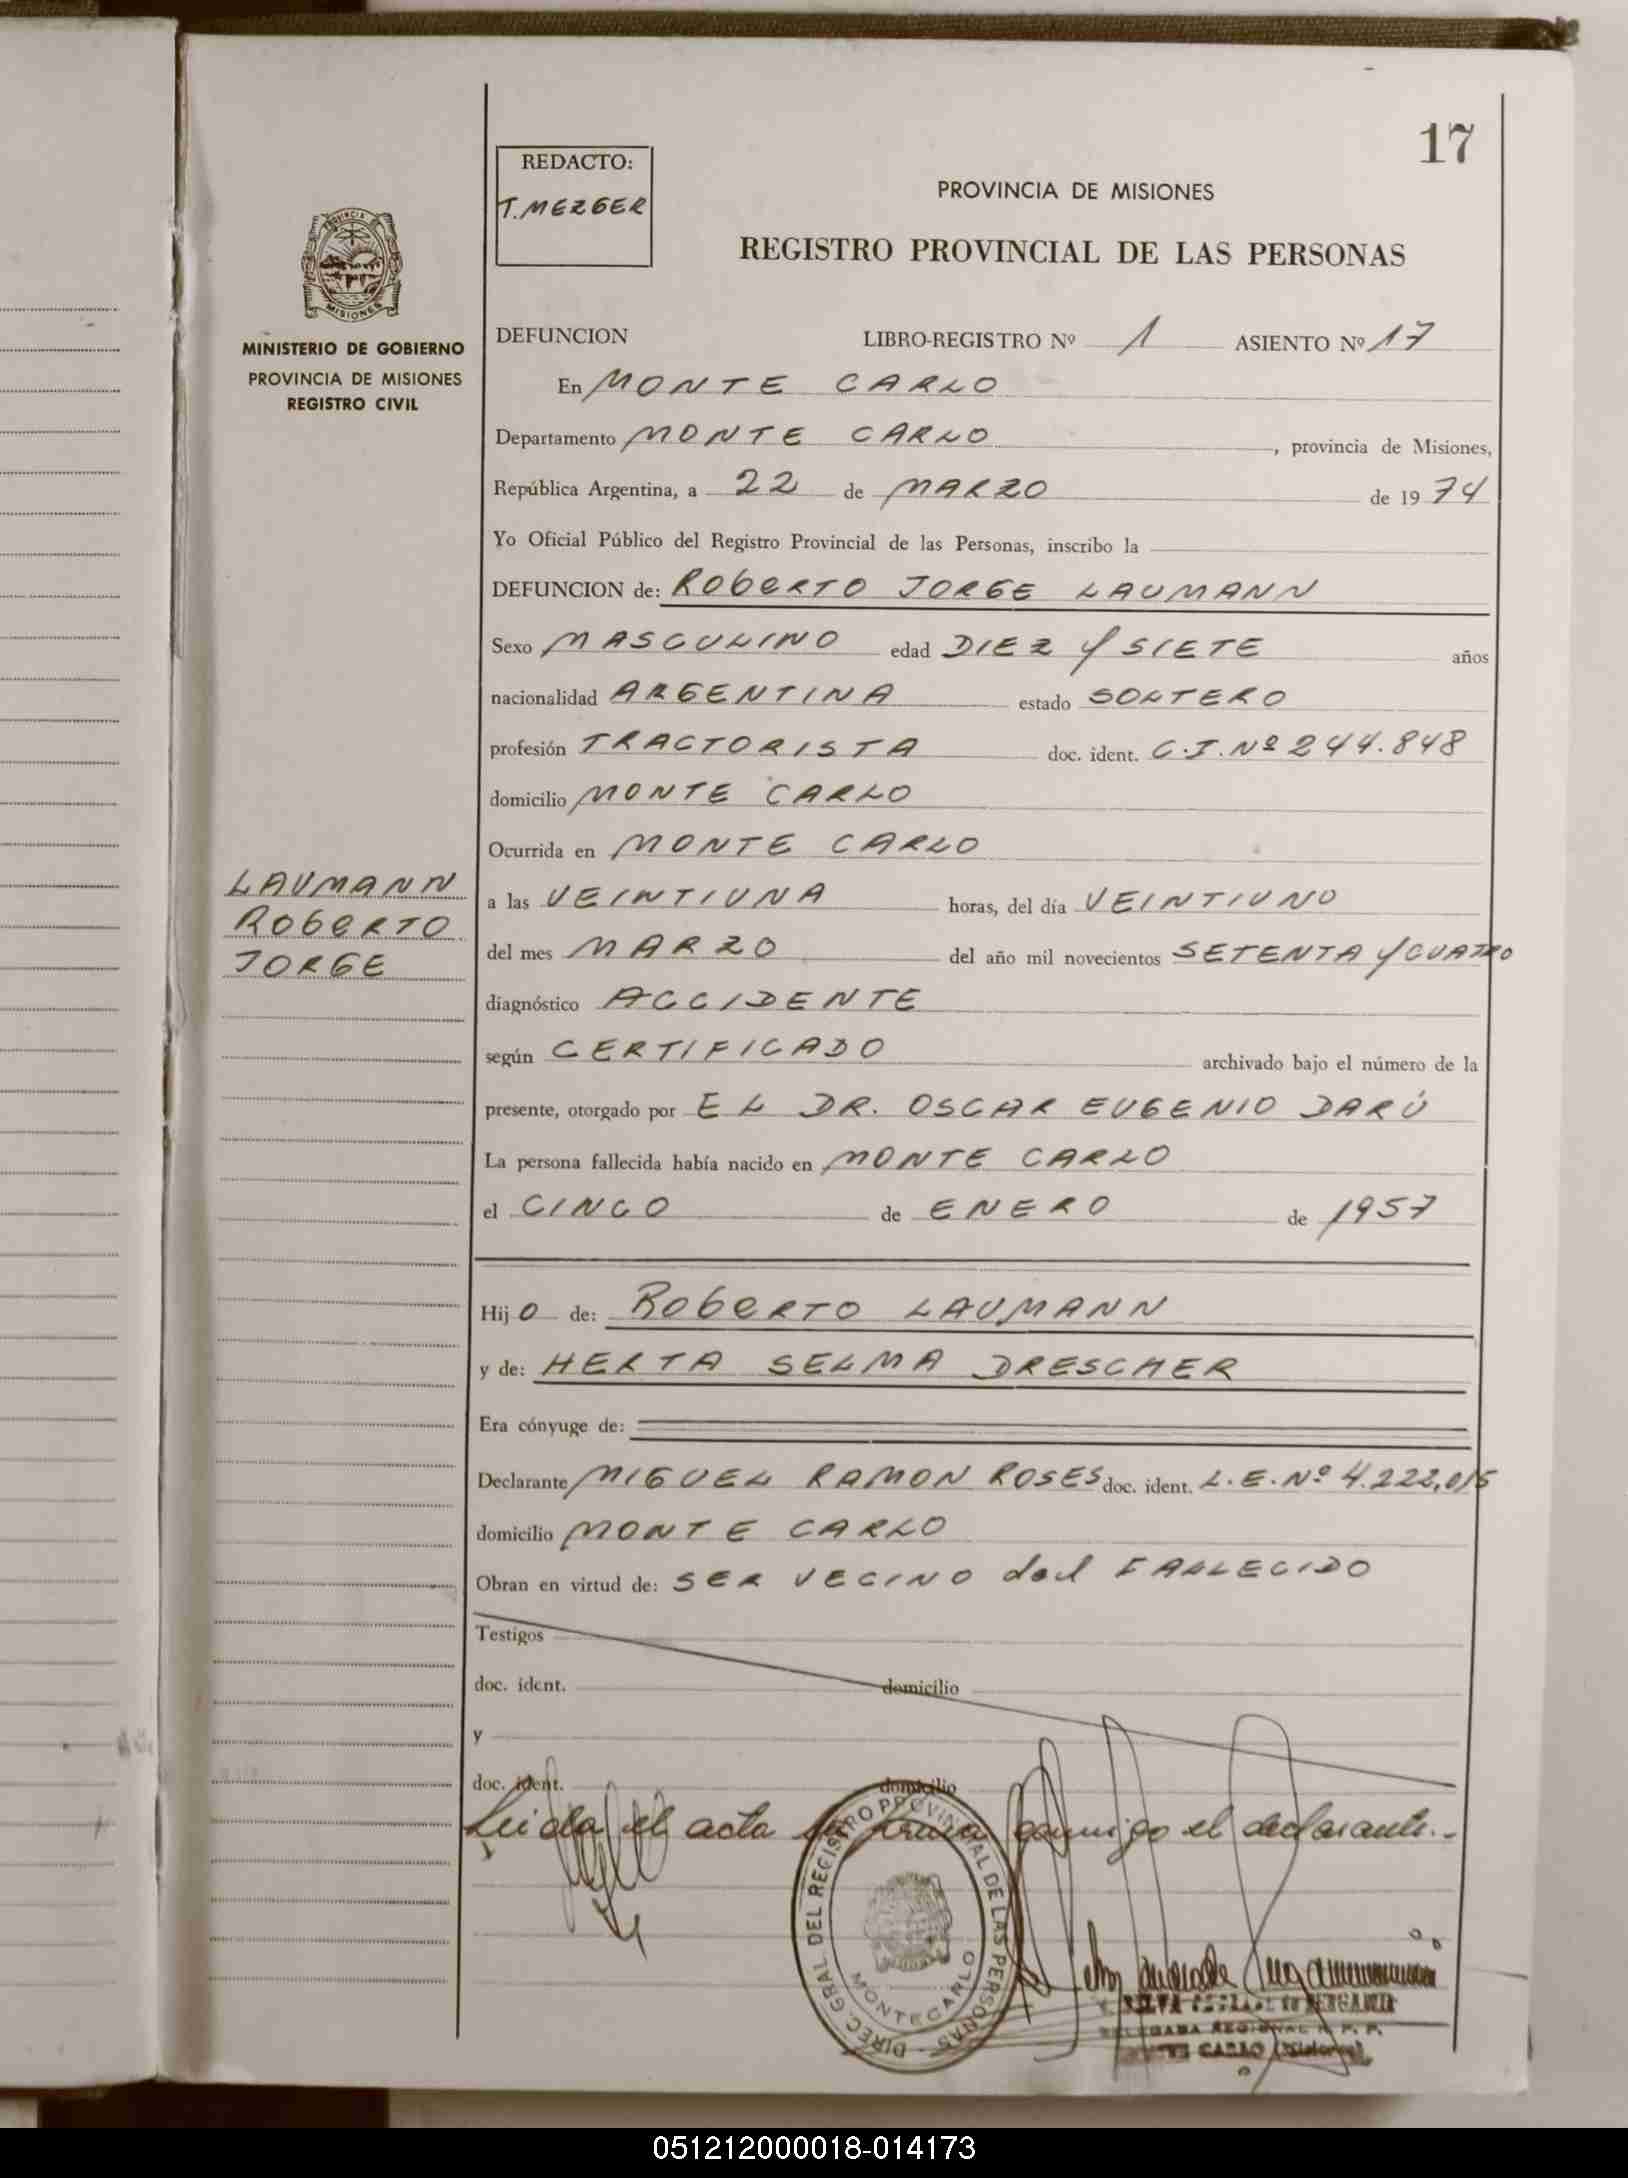 17
REDACTO:
T. MEZGER
PROVINCIA DE MISIONES
REGISTRO PROVINCIAL DE LAS PERSONAS
PROVINCIA DE
MISIONES
MINISTERIO DE GOBIERNO
PROVINCIA DE MISIONES
REGISTRO CIVIL
DEFUNCION LIBRO-REGISTRO Nº 1 ASIENTO Nº 17
En MONTE CARLO
Departamento MONTE CARLO, provincia de Misiones,
República Argentina, a 22 de MARZO de 1974
Yo Oficial Público del Registro Provincial de las Personas, inscribo la
DEFUNCION de: ROBERTO JORGE LAUMANN
Sexo MASCULINO edad DIEZ Y SIETE años
nacionalidad ARGENTINA estado SOLTERO
profesión TRACTORISTA doc. ident. C.I. Nº 244.848
domicilio MONTE CARLO
Ocurrida en MONTE CARLO
LAUMANN
ROBERTO
JORGE
a las VEINTIUNA horas, del día VEINTIUNO
del mes MARZO del año mil novecientos SETENTA Y CUATRO
diagnóstico ACCIDENTE
según CERTIFICADO archivado bajo el número de la
presente, otorgado por EL DR. OSCAR EUGENIO DARÚ
La persona fallecida había nacido en MONTE CARLO
el CINCO de ENERO de 1957
Hijo de: ROBERTO LAUMANN
y de: HERTA SELMA DRESCHER
Era cónyuge de:
Declarante MIGUEL RAMON ROSES doc. ident. L.E. Nº 4.222.015
domicilio MONTE CARLO
Obran en virtud de: SER VECINO del FALLECIDO
Testigos
doc. ident. domicilio
y
doc. ident. domicilio
Leida el acta la firma conmigo el declarante.-
DIREC. GRAL DEL REGISTRO PROVINCIAL DE LAS PERSONAS
MONTECARLO
DELEGADA REGIONAL R. P. P.
CARLO (Misiones)
051212000018-014173